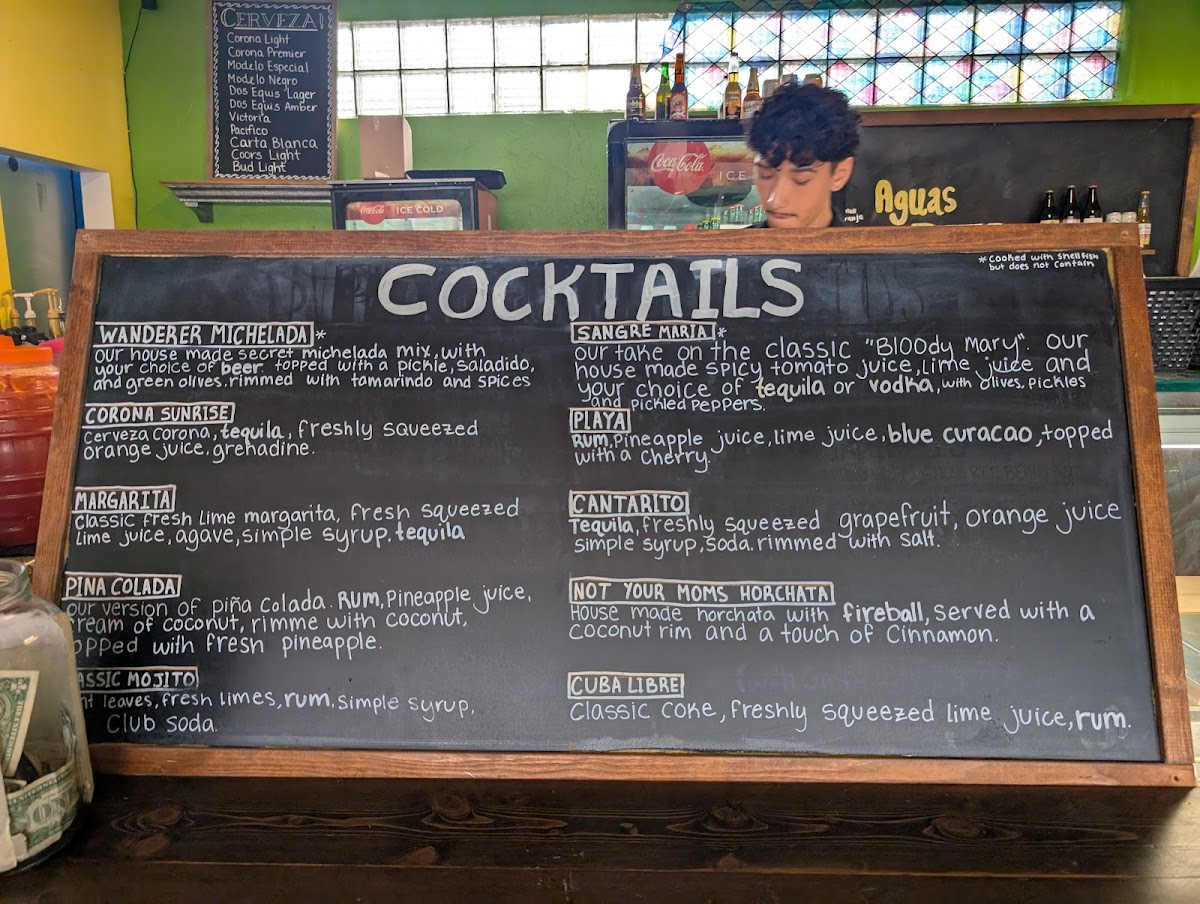 CERVEZA!
Corona Light
Corona Premier
Modelo Especial
Modelo Negro
Dos Equis Lager
Dos Equis Amber
Victoria
Pacifico
Carta Blanca
Coors Light
Bud Light
Coca-Cola
ICE COLD
Coca-Cola
ICE
Aguas
COCKTAILS
* Cooked with Shellfish
but does not contain
WANDERER MICHELADA *
our house made secret michelada mix, with
your choice of beer. topped with a pickle, saladido,
and green olives. rimmed with tamarindo and spices
CORONA SUNRISE
Cerveza corona, tequila, freshly squeezed
orange juice, grenadine.
MARGARITA
Classic fresh lime margarita, fresh squeezed
lime juice, agave, simple syrup. tequila
PINA COLADA
our version of piña colada. Rum, Pineapple juice,
ream of coconut, rimme with coconut,
opped with fresh pineapple.
ASSIC MOJITO
nt leaves, fresh limes, rum. simple syrup,
Club soda.
SANGRE MARIA *
our take on the classic "BlOOdy Mary". our
house made spicy tomato juice, Lime juice and
your choice of tequila or vodka, with olives, pickles
and pickled peppers.
PLAYA
Rum, Pineapple juice, lime juice, blue curacao, topped
with a cherry.
CANTARITO
Tequila, freshly squeezed grapefruit, orange juice
simple syrup, soda. rimmed with salt.
NOT YOUR MOMS HORCHATA
House made horchata with fireball, served with a
coconut rim and a touch of Cinnamon.
CUBA LIBRE
Classic coke, freshly squeezed lime juice, rum.